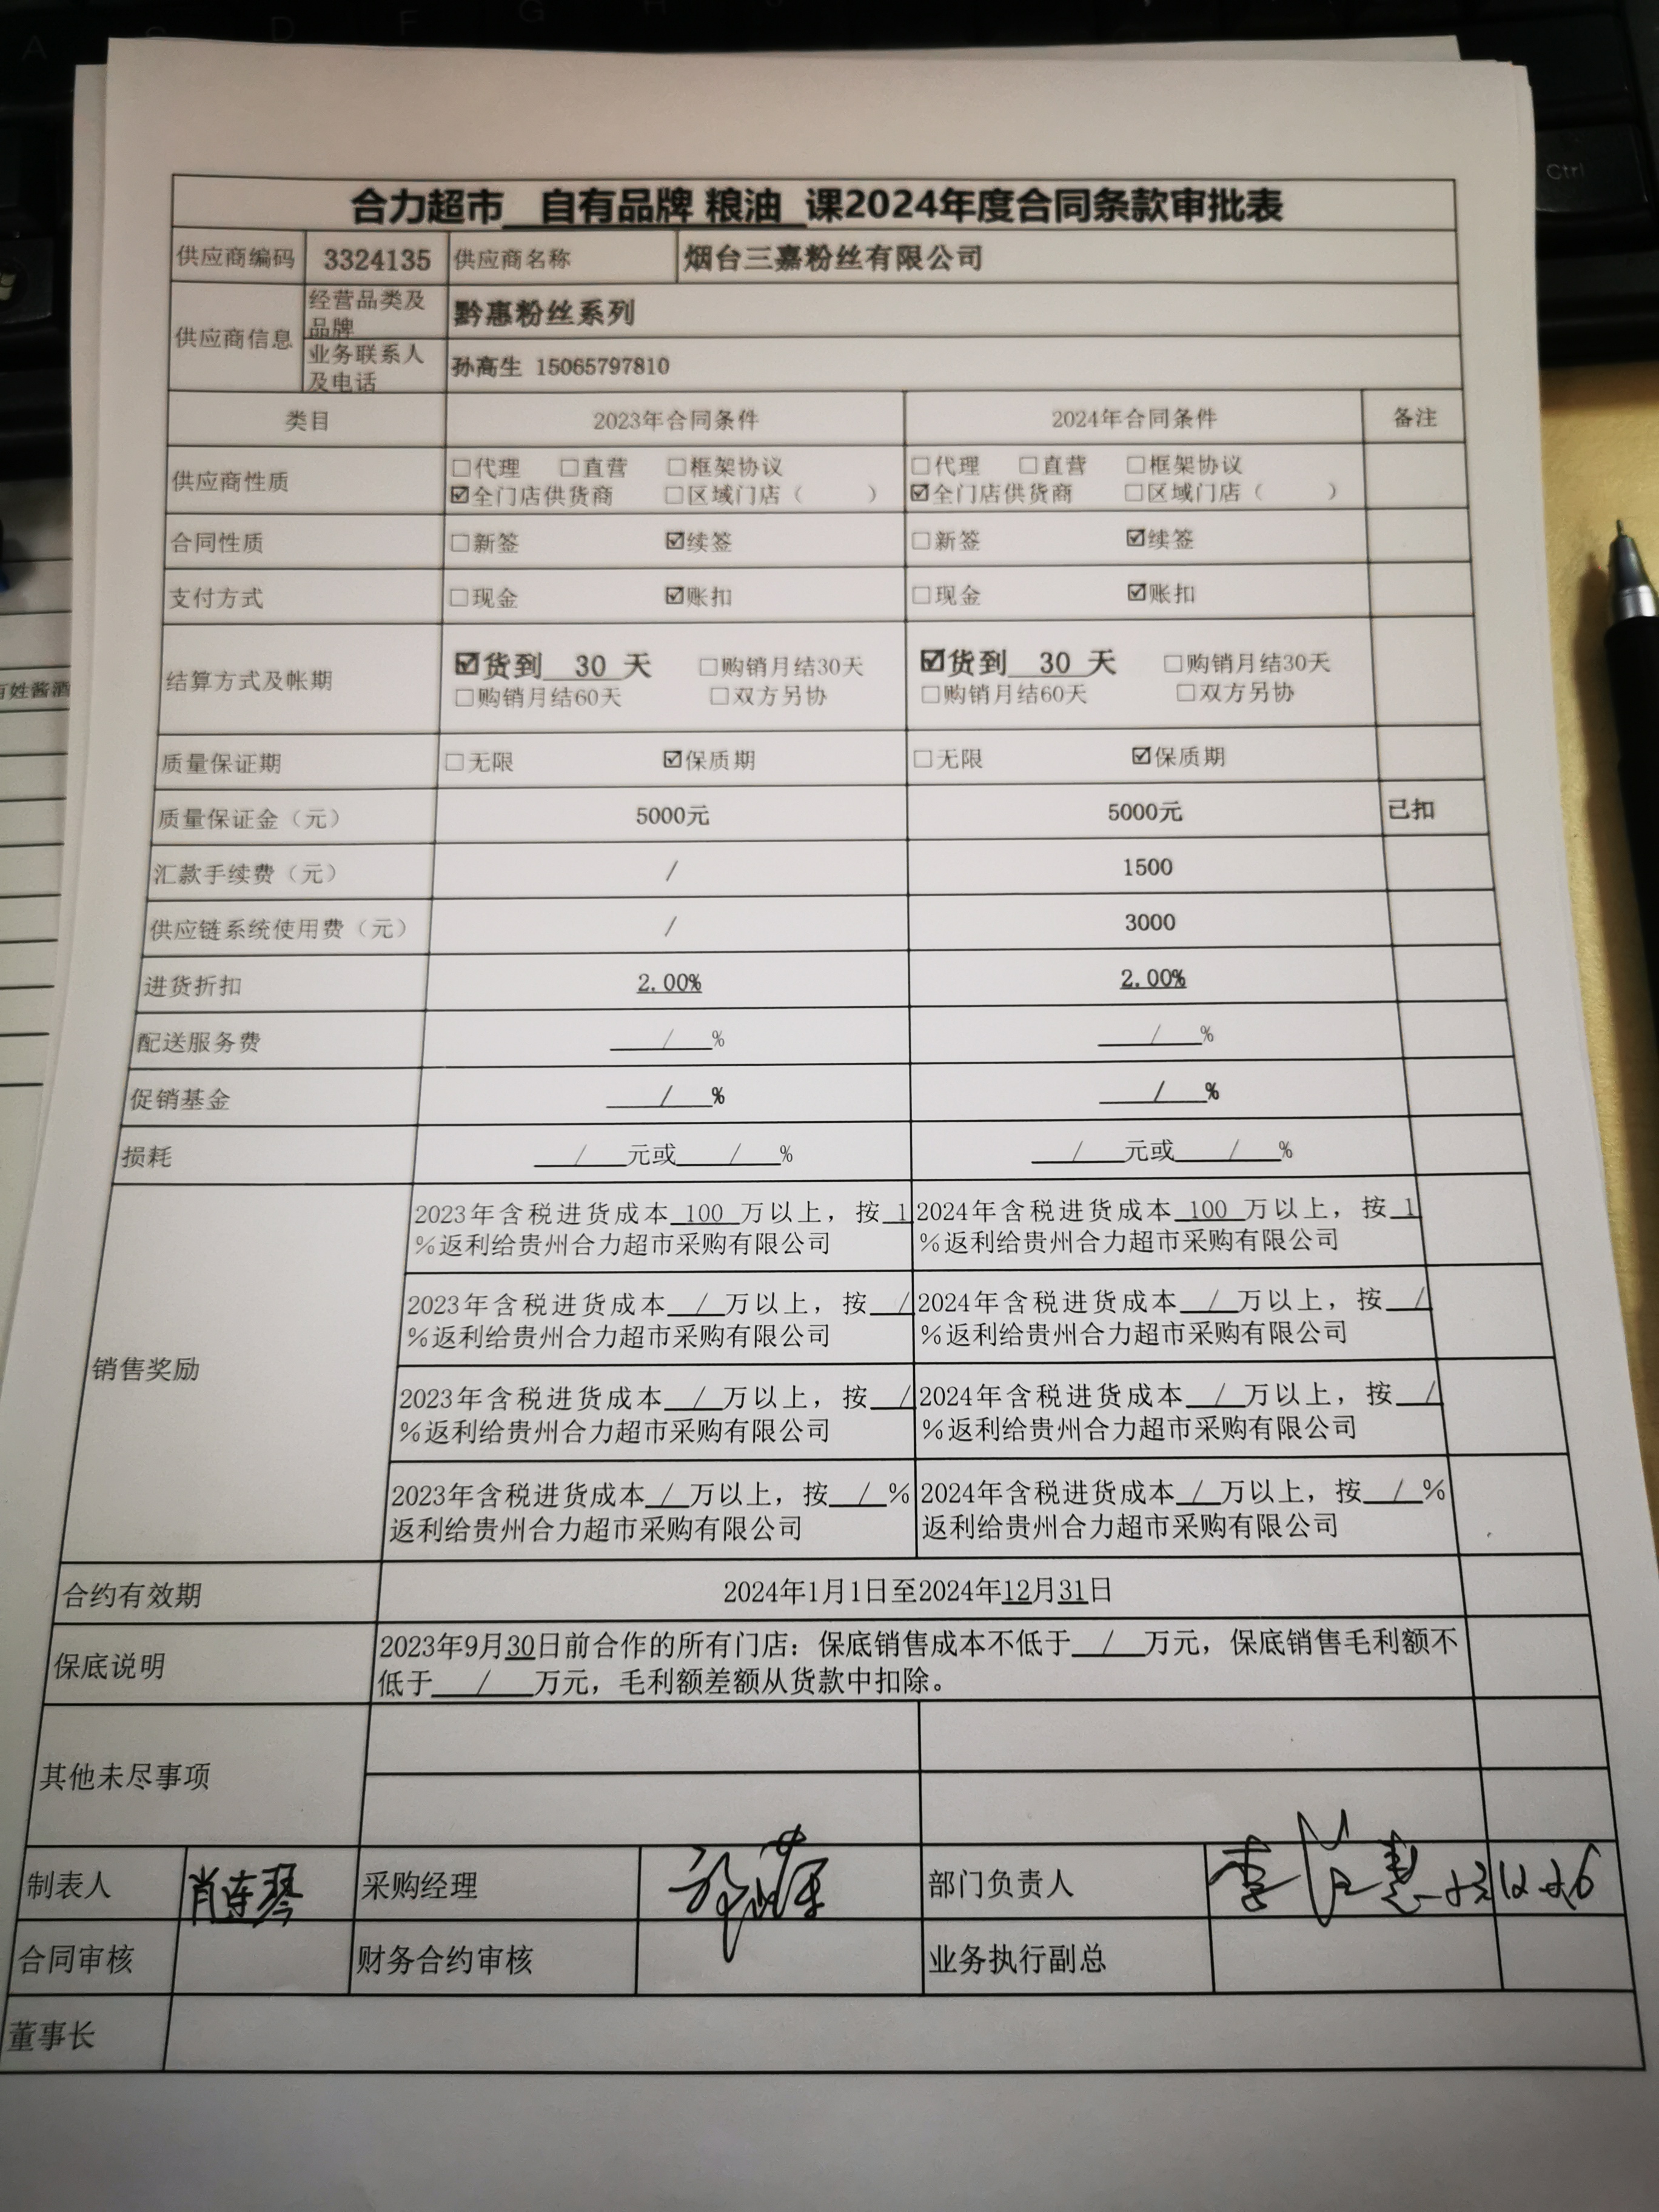 合力超市 自有品牌 粮油 课2024年度合同条款审批表
供应商编码 3324135 供应商名称 烟台三嘉粉丝有限公司
供应商信息 经营品类及品牌 黔惠粉丝系列
业务联系人及电话 孙高生 15065797810
类目 2023年合同条件 2024年合同条件 备注
供应商性质 □代理 □直营 □框架协议 □代理 □直营 □框架协议
☑全门店供货商 □区域门店（ ） ☑全门店供货商 □区域门店（ ）
合同性质 □新签 ☑续签 □新签 ☑续签
支付方式 □现金 ☑账扣 □现金 ☑账扣
结算方式及帐期 ☑货到 30 天 □购销月结30天 ☑货到 30 天 □购销月结30天
□购销月结60天 □双方另协 □购销月结60天 □双方另协
质量保证期 □无限 ☑保质期 □无限 ☑保质期
质量保证金（元） 5000元 5000元 已扣
汇款手续费（元） / 1500
供应链系统使用费（元） / 3000
进货折扣 2.00% 2.00%
配送服务费 / % / %
促销基金 / % / %
损耗 / 元或 / % / 元或 / %
销售奖励
2023年含税进货成本 100 万以上，按 1
%返利给贵州合力超市采购有限公司
2024年含税进货成本 100 万以上，按 1
%返利给贵州合力超市采购有限公司
2023年含税进货成本 / 万以上，按 /
%返利给贵州合力超市采购有限公司
2024年含税进货成本 / 万以上，按 /
%返利给贵州合力超市采购有限公司
2023年含税进货成本 / 万以上，按 /
%返利给贵州合力超市采购有限公司
2024年含税进货成本 / 万以上，按 /
%返利给贵州合力超市采购有限公司
2023年含税进货成本 / 万以上，按 / %
返利给贵州合力超市采购有限公司
2024年含税进货成本 / 万以上，按 / %
返利给贵州合力超市采购有限公司
合约有效期 2024年1月1日至2024年12月31日
保底说明 2023年9月30日前合作的所有门店：保底销售成本不低于 / 万元，保底销售毛利额不
低于 / 万元，毛利额差额从货款中扣除。
其他未尽事项
制表人 肖连琴 采购经理 部门负责人
合同审核 财务合约审核 业务执行副总
董事长